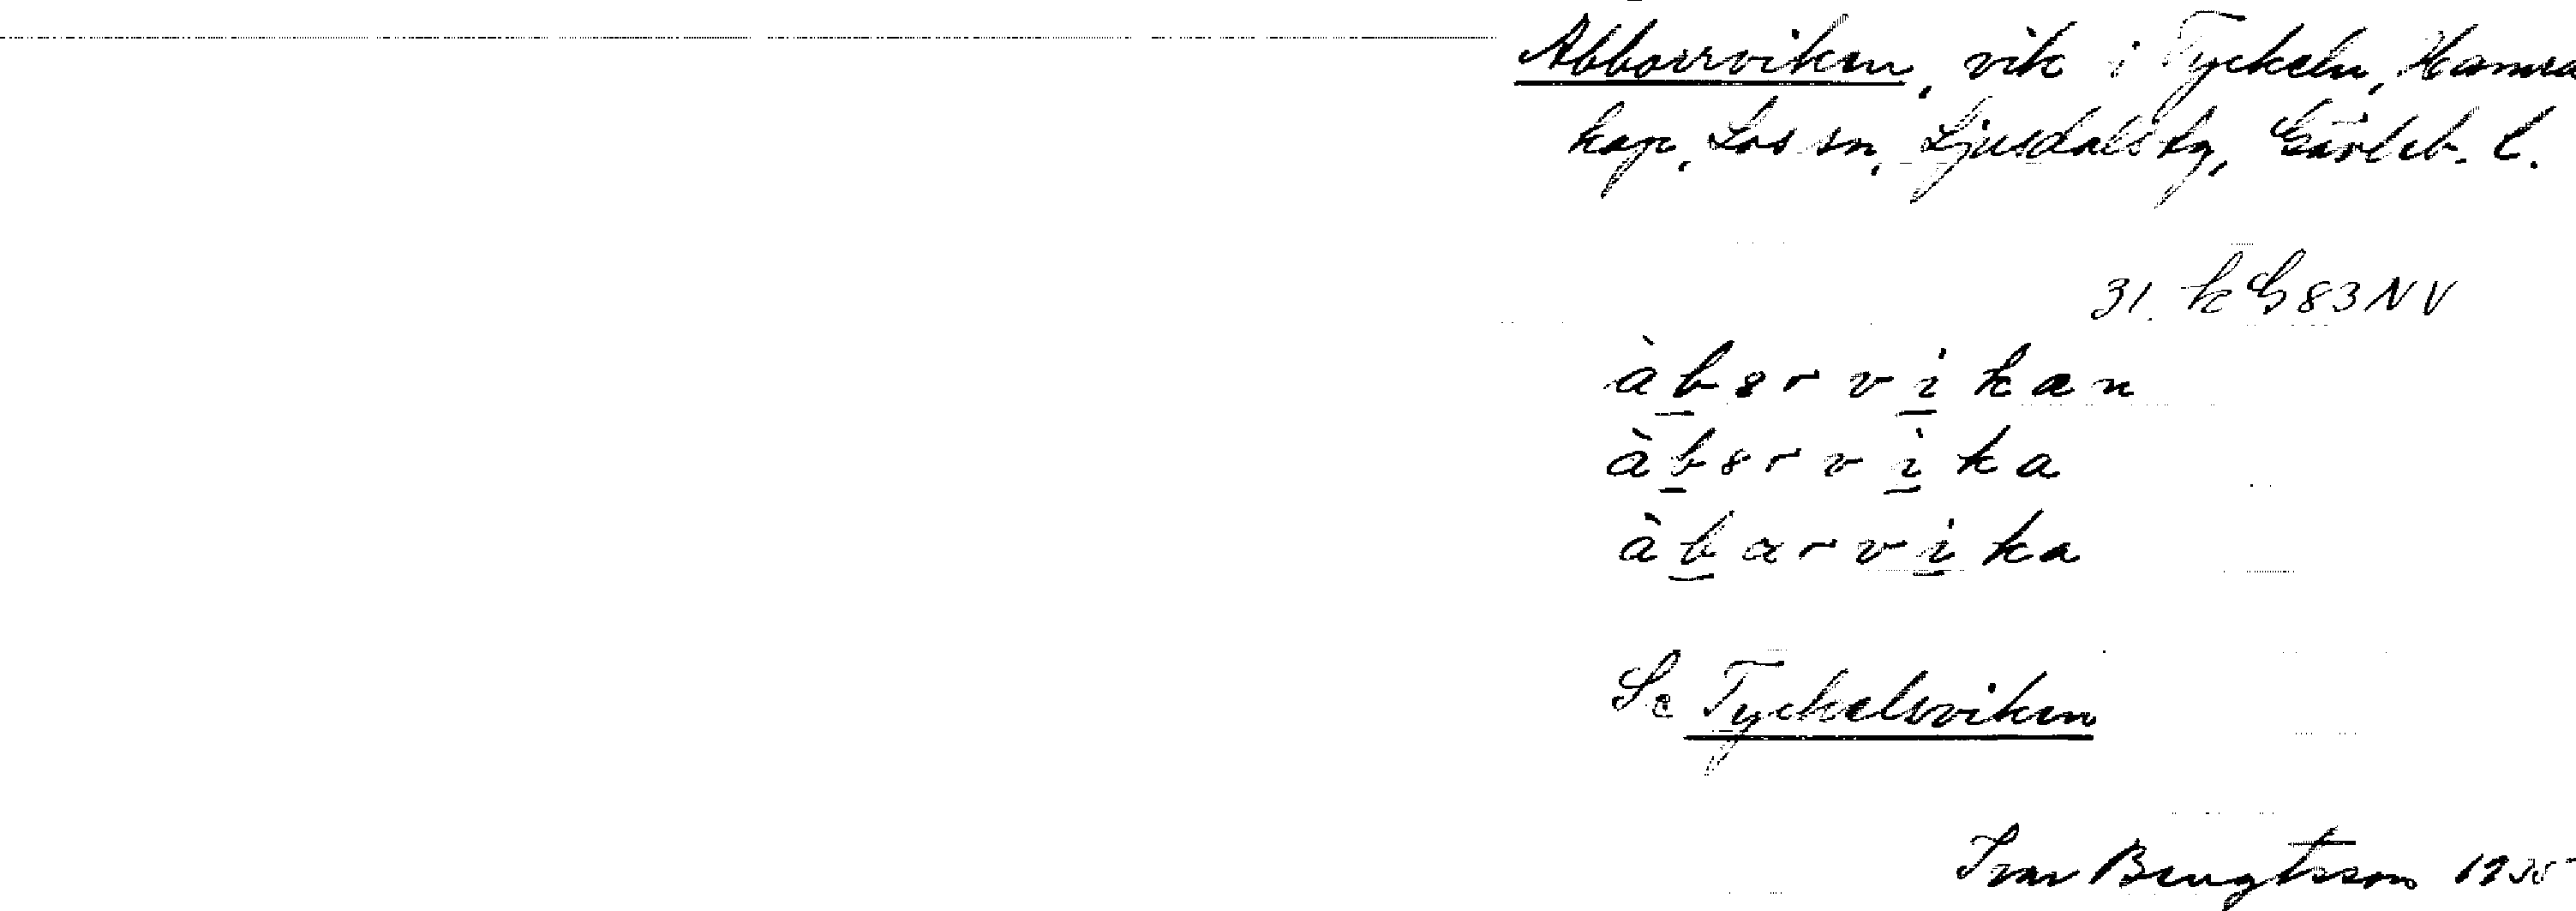 Abborrviken, vik i Tyckeln, Hamra
kap, Los sn, Ljusdals tg, Gävleb. l.
31. k G 83 NV
àbərvikan
àbərvika
àbarvika
Se Tyckelsviken
Ivar Bengtsson 1935